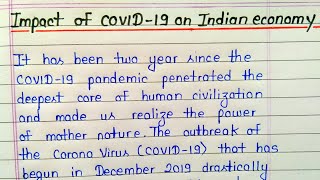 Impact of COVID-19 on Indian economy
It has been two year since the
COVID-19 pandemic penetrated the
deepest core of human civilization
and made us realize the power
of mother nature. The outbreak of
the Corona Virus (COVID-19) that has
begun in December 2019 drastically